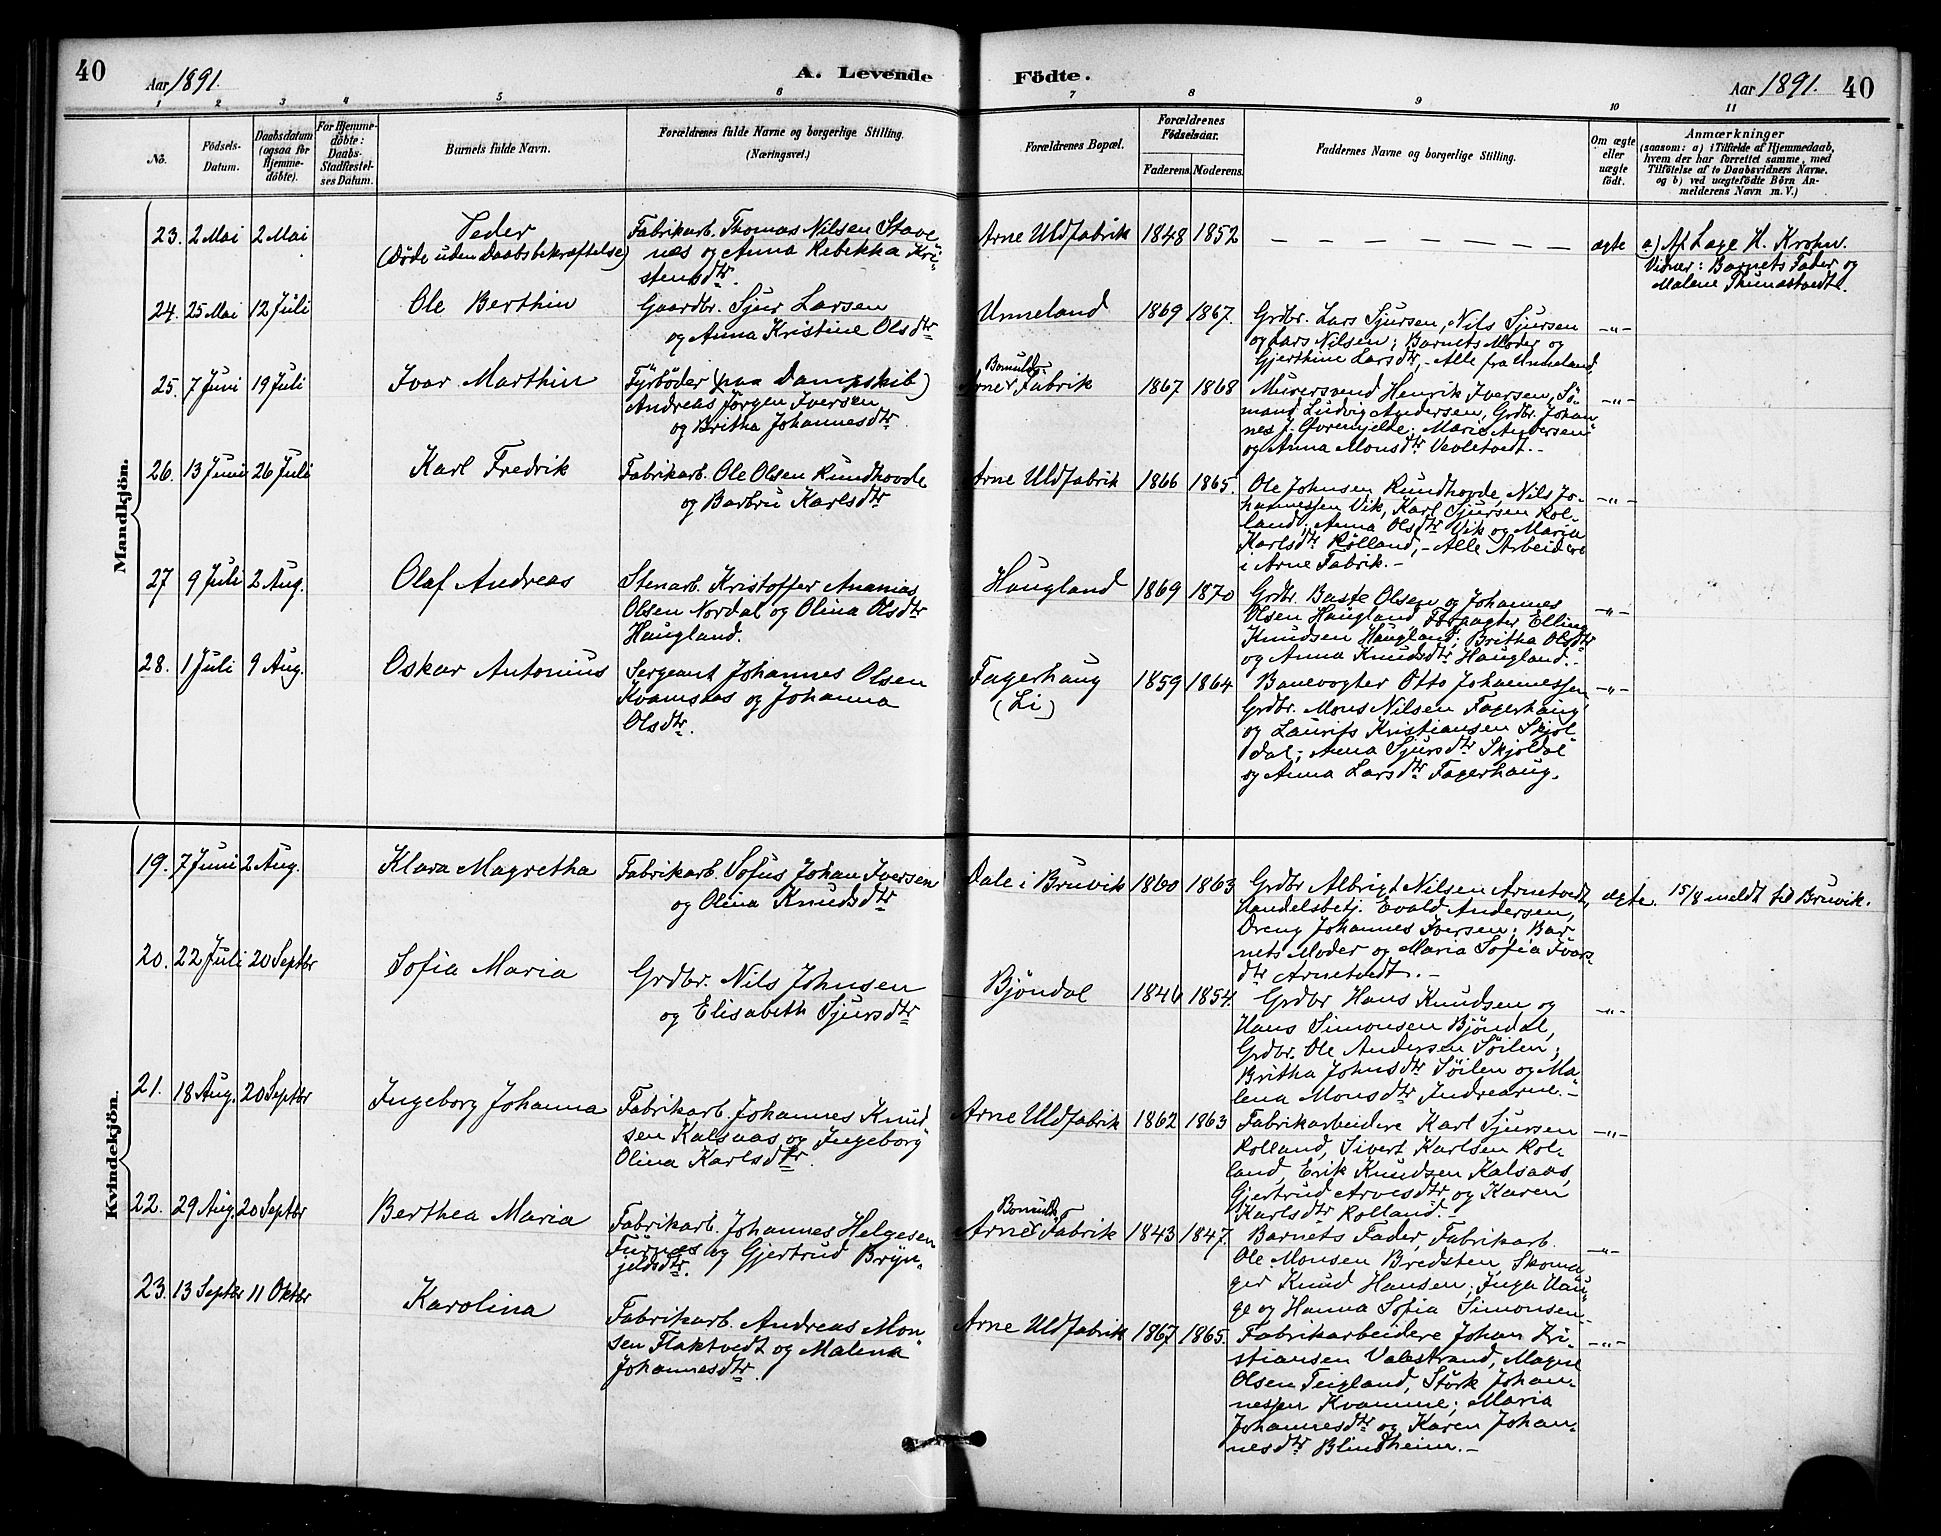 40
Aar 1891.
A. Levende Födte.
Aar 1891.
40
1 2 3 4 5 6 7 8 9 10 11
No.
Födsels-
Datum.
Daabsdatum
(ogsaa for
Hjemme-
döbte).
For Hjemme-
döbte:
Daabs-
Stadfæstel-
ses Datum.
Barnets fulde Navn.
Forældrenes fulde Navne og borgerlige Stilling.
(Næringsvei.)
Forældrenes Bopæl.
Forældrenes
Födselsaar.
Faderens. Moderens.
Faddernes Navne og borgerlige Stilling.
Om ægte
eller
uægte
födt.
Anmærkninger
(saasom: a) i Tilfælde af Hjemmedaab,
hvem der har forrettet samme, med
Tilföielse af to Daabsvidners Navne.
og b) ved uægtefödte Börn An-
melderens Navn m. V.)
Mandkjön.
23. 2 Mai 2 Mai
Peder
(Döde uden Daabsbekræftelse)
Fabrikarb. Thomas Nilsen Stave
næs og Anna Rebekka Kri-
stensdtr.
Arne Uldfabrik 1848 1852
— — — — — — — —
ægte
a) Af Lage H. Krohn.
Vidner: Barnets Fader og
Malene Thunestvedt.
24. 25 Mai 12 Juli
Ole Berthin
Gaardbr. Sjur Larsen
og Anna Kristine Olsdtr
Unneland 1869 1867.
Grdbr. Lars Sjursen, Nils Sjursen
og Lars Nilsen; Barnets Moder og
Gjerthine Larsdtr, - Alle fra Unneland
-"-
25. 7 Juni 19 Juli
Ivar Marthin
Fyrböder (paa Dampskib)
Andreas Jörgen Iversen
og Britha Johannesdtr
Bomulds-
Arne Fabrik 1867 1868
Murersvend Henrik Iversen, Sö-
mand Ludvig Andersen, Grdbr. Johan
nes J. Övremjelde; Marie Andersen
og Anna Monsdtr Vevletvedt. -
-"-
26. 13 Juni 26 Juli
Karl Fredrik
Fabrikarb. Ole Olsen Rundhovde
og Barbru Karlsdtr
Arne Uldfabrik 1866 1865.
Ole Johnsen Rundhovde, Nils Jo-
hannessen Vik, Karl Sjursen Rol-
land; Anna Olsdtr Vik og Maria
Karlsdtr Rolland, - Alle Arbeidere
i Arne Fabrik. -
-"-
27 9 Juli 2 Aug.
Olaf Andreas
Stenarb. Kristoffer Ananias
Olsen Nordal og Olina Olsdtr
Haugland.
Haugland 1869 1870
Grdbr. Baste Olsen og Johannes
Olsen Haugland, Forpagter Elling
Knudsen Haugland; Britha Olsdtr
og Anna Knudsdtr Haugland. -
-"-
28. 1 Juli 9 Aug.
Oskar Antonius
Sergeant Johannes Olsen
Kvamsaas og Johanna
Olsdtr.
Fagerhaug
(Li)
1859 1864
Banevogter Otto Johannessen
Grdbr. Mons Nilsen Fagerhaug
og Laurits Kristiansen Skjol
dal; Anna Sjursdtr Skjoldal
og Anna Larsdtr Fagerhaug.
-"-
Kvindekjön.
19. 7 Juni 2 Aug.
Klara Magretha
Fabrikarb. Sofus Johan Iversen
og Olina Knudsdtr
Dale i Bruvik 1860 1863
Grdbr Albrigt Nilsen Arnetvedt,
Handelsbetj. Evald Andersen,
Dreng Johannes Iversen; Bar
nets Moder og Maria Sofia Ivars-
dtr Arnetvedt. -
ægte.
15/8 meldt til Bruvik.
20. 22 Juli 20 Septbr
Sofia Maria
Grdbr. Nils Johnsen
og Elisabeth Sjursdtr
Bjöndal 1846 1854.
Grdbr Hans Knudsen og
Hans Simonsen Bjöndal,
Grdbr. Ole Andersen Söilen;
Britha Johnsdtr Söilen og Ma-
lena Monsdtr Indrearne. -
-"-
21. 18 Aug. 20 Septbr
Ingeborg Johanna
Fabrikarb. Johannes Knud
sen Kalsaas og Ingeborg
Olina Karlsdtr.
Arne Uldfabrik 1862 1863
Fabrikarbeidere Karl Sjursen
Rolland, Sivert Karlsen Rol-
land, Erik Knudsen Kalsaas,
Gjertrud Arvesdtr, og Karen
Karlsdtr Rolland. -
-"-
22. 29 Aug. 20 Septbr
Berthea Maria
Fabrikarb. Johannes Helgesen
Furnæs og Gjertrud Bryn-
jeldsdtr.
Bomulds
Arne Fabrik 1843 1847.
Barnets Fader, Fabrikarb.
Ole Monsen Bredsten, Skoma
ger Knud Hansen; Inga Hau-
ge og Hanna Sofia Simonsen
-"-
23. 13 Septbr 11 Oktbr
Karolina
Fabrikarb. Andreas Mon
sen Flaktvedt og Malena
Johannesdtr.
Arne Uldfabrik 1867 1865.
Fabrikarbeidere Johan Kri-
stiansen Valestrand, Magne
Olsen Teigland, Störk Johan-
nessen Kvamme; Maria
Johannesdtr og Karen Johan-
nesdtr Blindheim. -
-"-